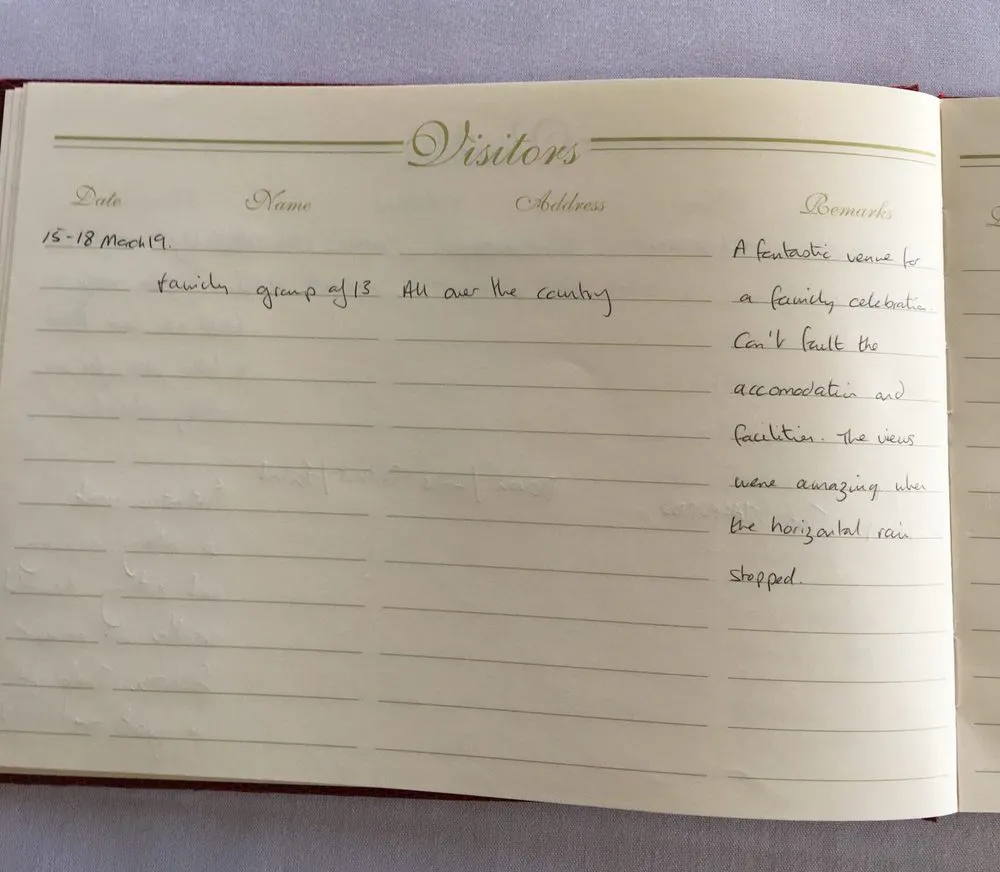 Visitors
Date Name Address Remarks
15-18 March 19.
A fantastic venue for
family group of 13 All over the country
a family celebration.
Can't fault the
accomodation and
facilities. The views
were amazing when
the horizontal rain
stopped.